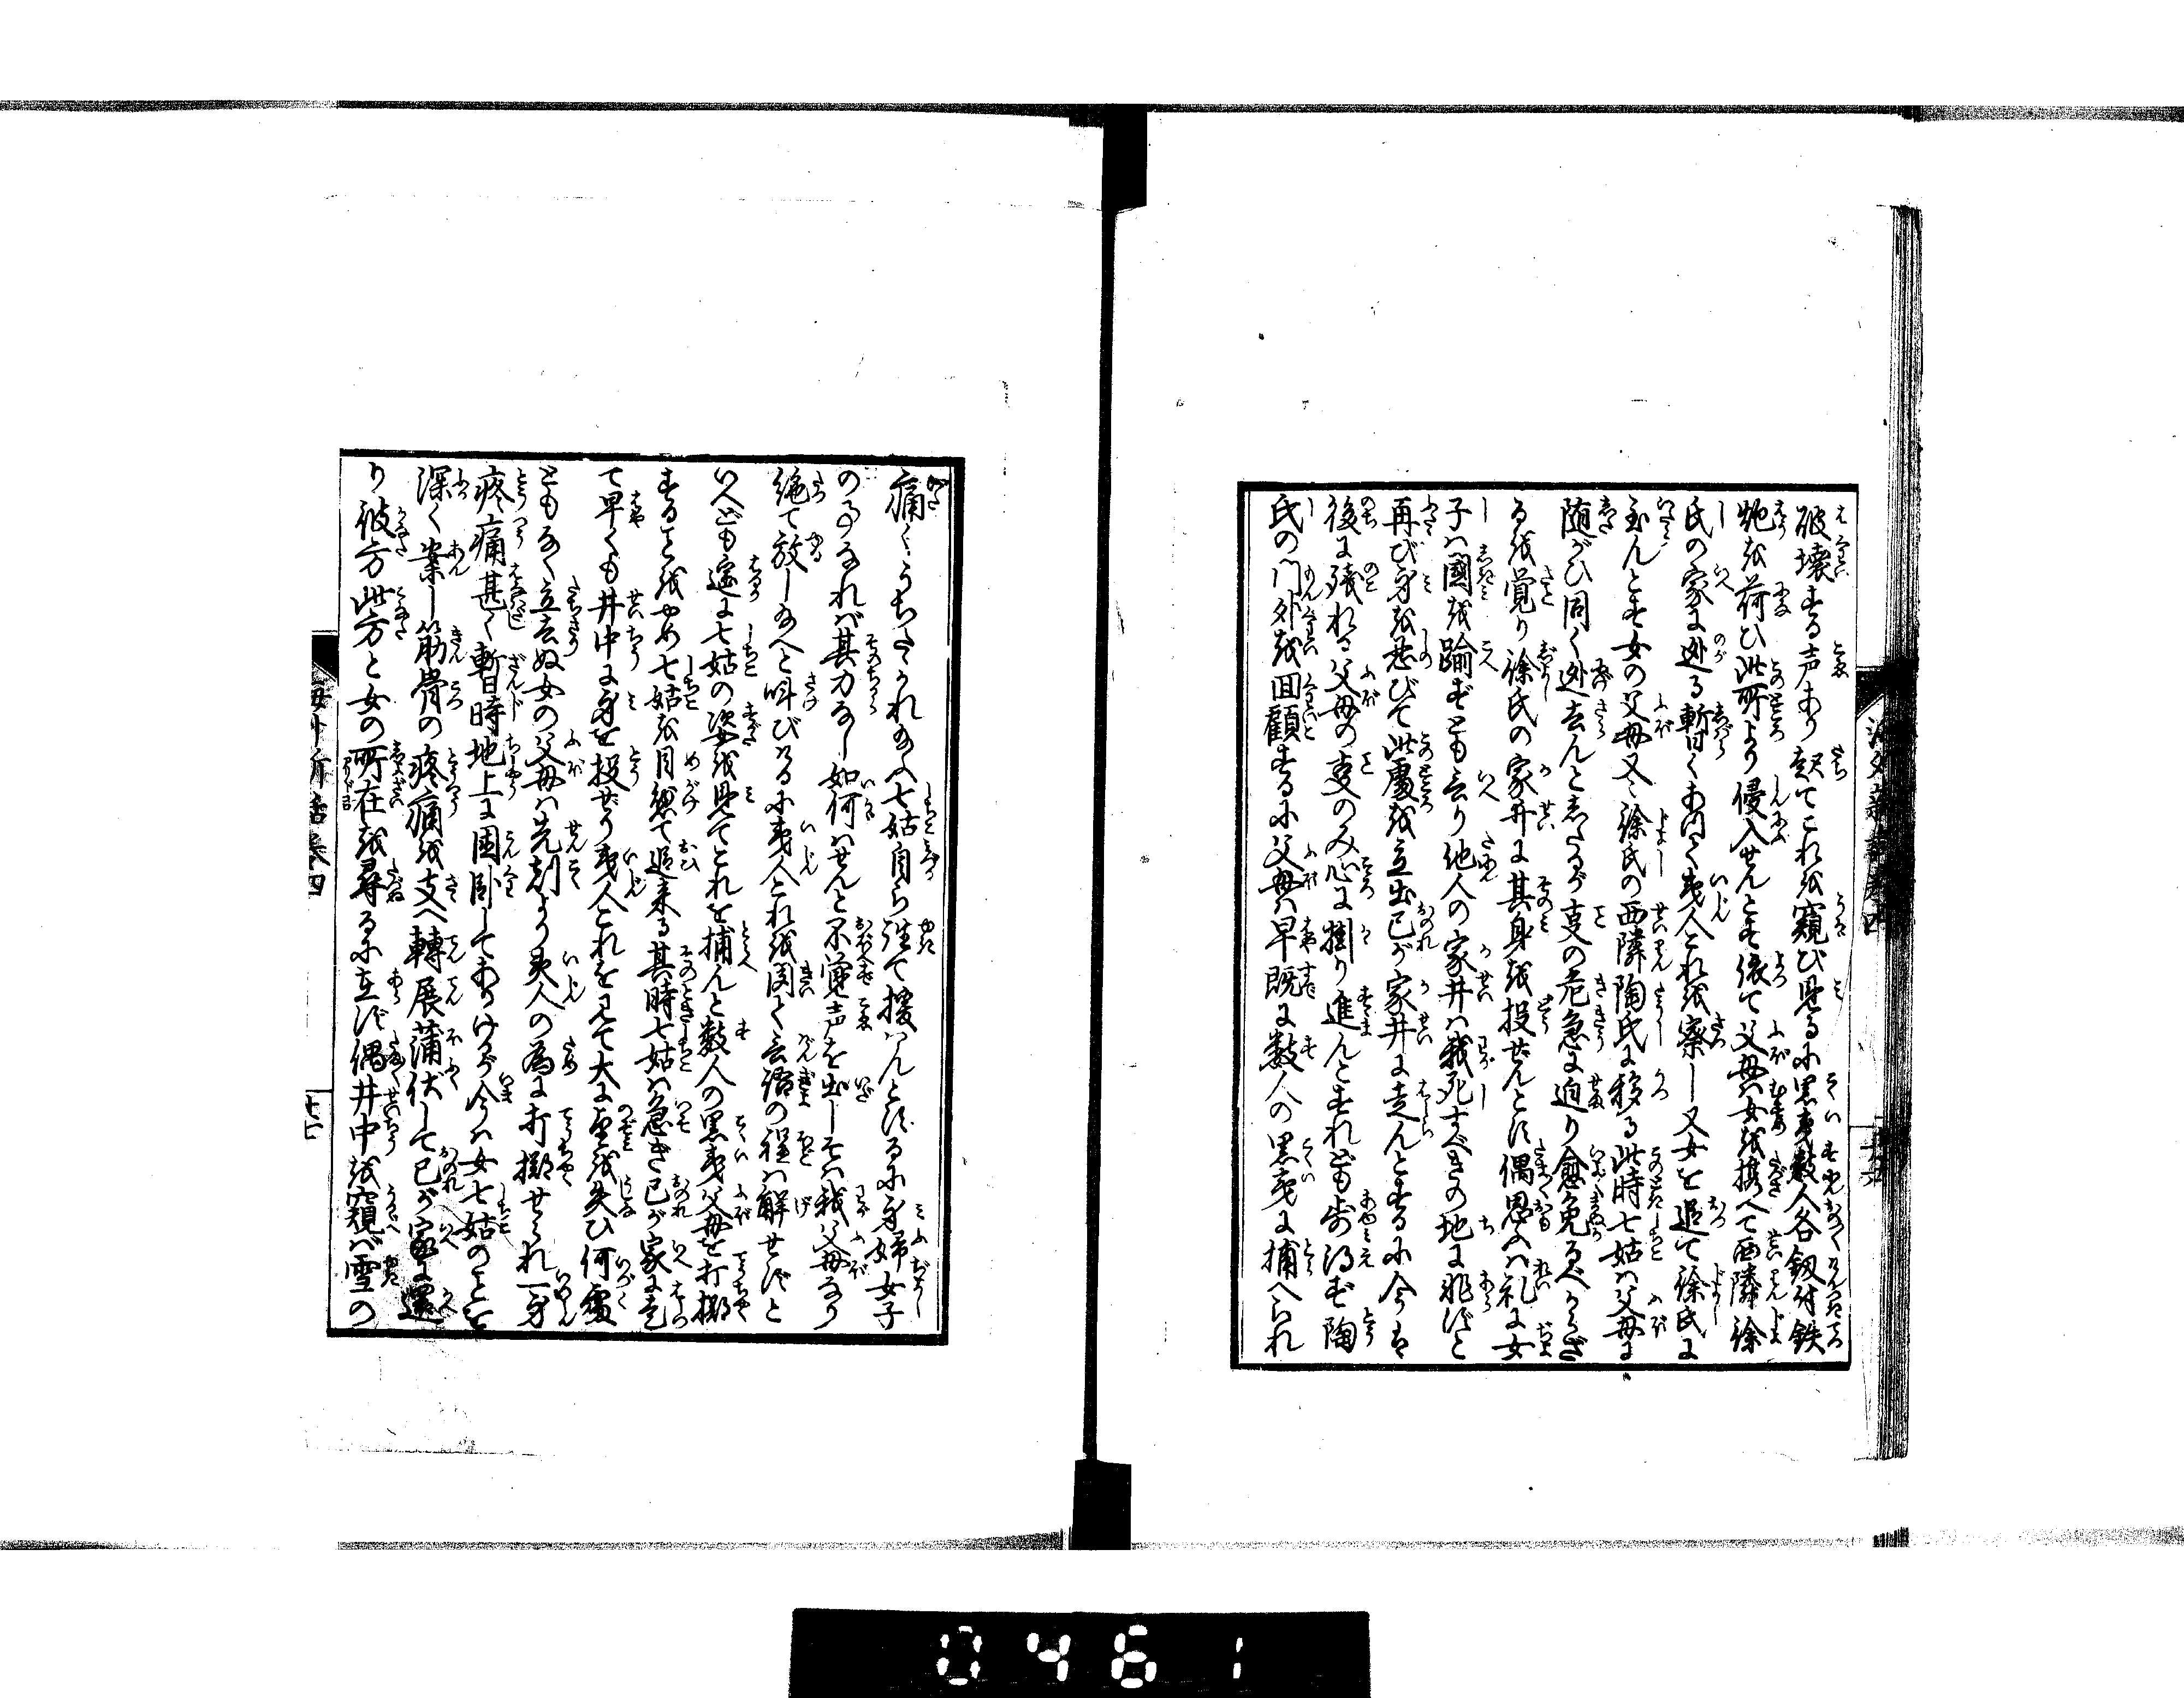 破壊する声あり起てこれを窺ひ見るに黒夷数人各釼付鉄
炮を荷ひ此所より侵入せんとす依て父母は女を携へて西隣徐
氏の家に迯る暫くありて夷人これを察し又女を追て徐氏に
至んとす女の父母又徐氏の西隣陶氏に移る此時七姑は父母に
随がひ同く迯去んとしたるが事の危急に迫り愈免るべからざ
るを覚り徐氏の家井に其身を投せんとす偶思ふは礼に女
子は國を踰ずとも云り他人の家井は我死すべきの地に非ずと
再び身を忍びて此處を立出己が家井に走んとするに今は
後に残れる父母の事のみ心に掛り進んとすれども歩得ず陶
氏の門外を回顧するに父母は早既に数人の黒夷に捕へられ
痛くうちたゝれ給ふ七姑自ら往て援はんとするに身婦女子
の事なれば其力なし如何はせんと不覚声を出しそは我父母なり
絶て放し給へと叫びけるに夷人これを聞く言語の程は解せずと
いへども遥に七姑の姿を見てこれを捕んと数人の黒夷父母を打擲
することをやめ七姑を目懸て追来る其時七姑は急き己が家に走
て早くも井中に身を投せり夷人これを見て大に望を失ひ何處
ともなく立去ぬ女の父母は先刻より夷人の為に打擲せられ一身
疼痛甚く暫時地上に困臥してありけるが今は女七姑のことを
深く案し筋骨の疼痛を支へ轉展蒲伏して己が家に還
り彼方此方と女の所在を尋るに在ず偶井中を窺ば雪の
海外新話巻四